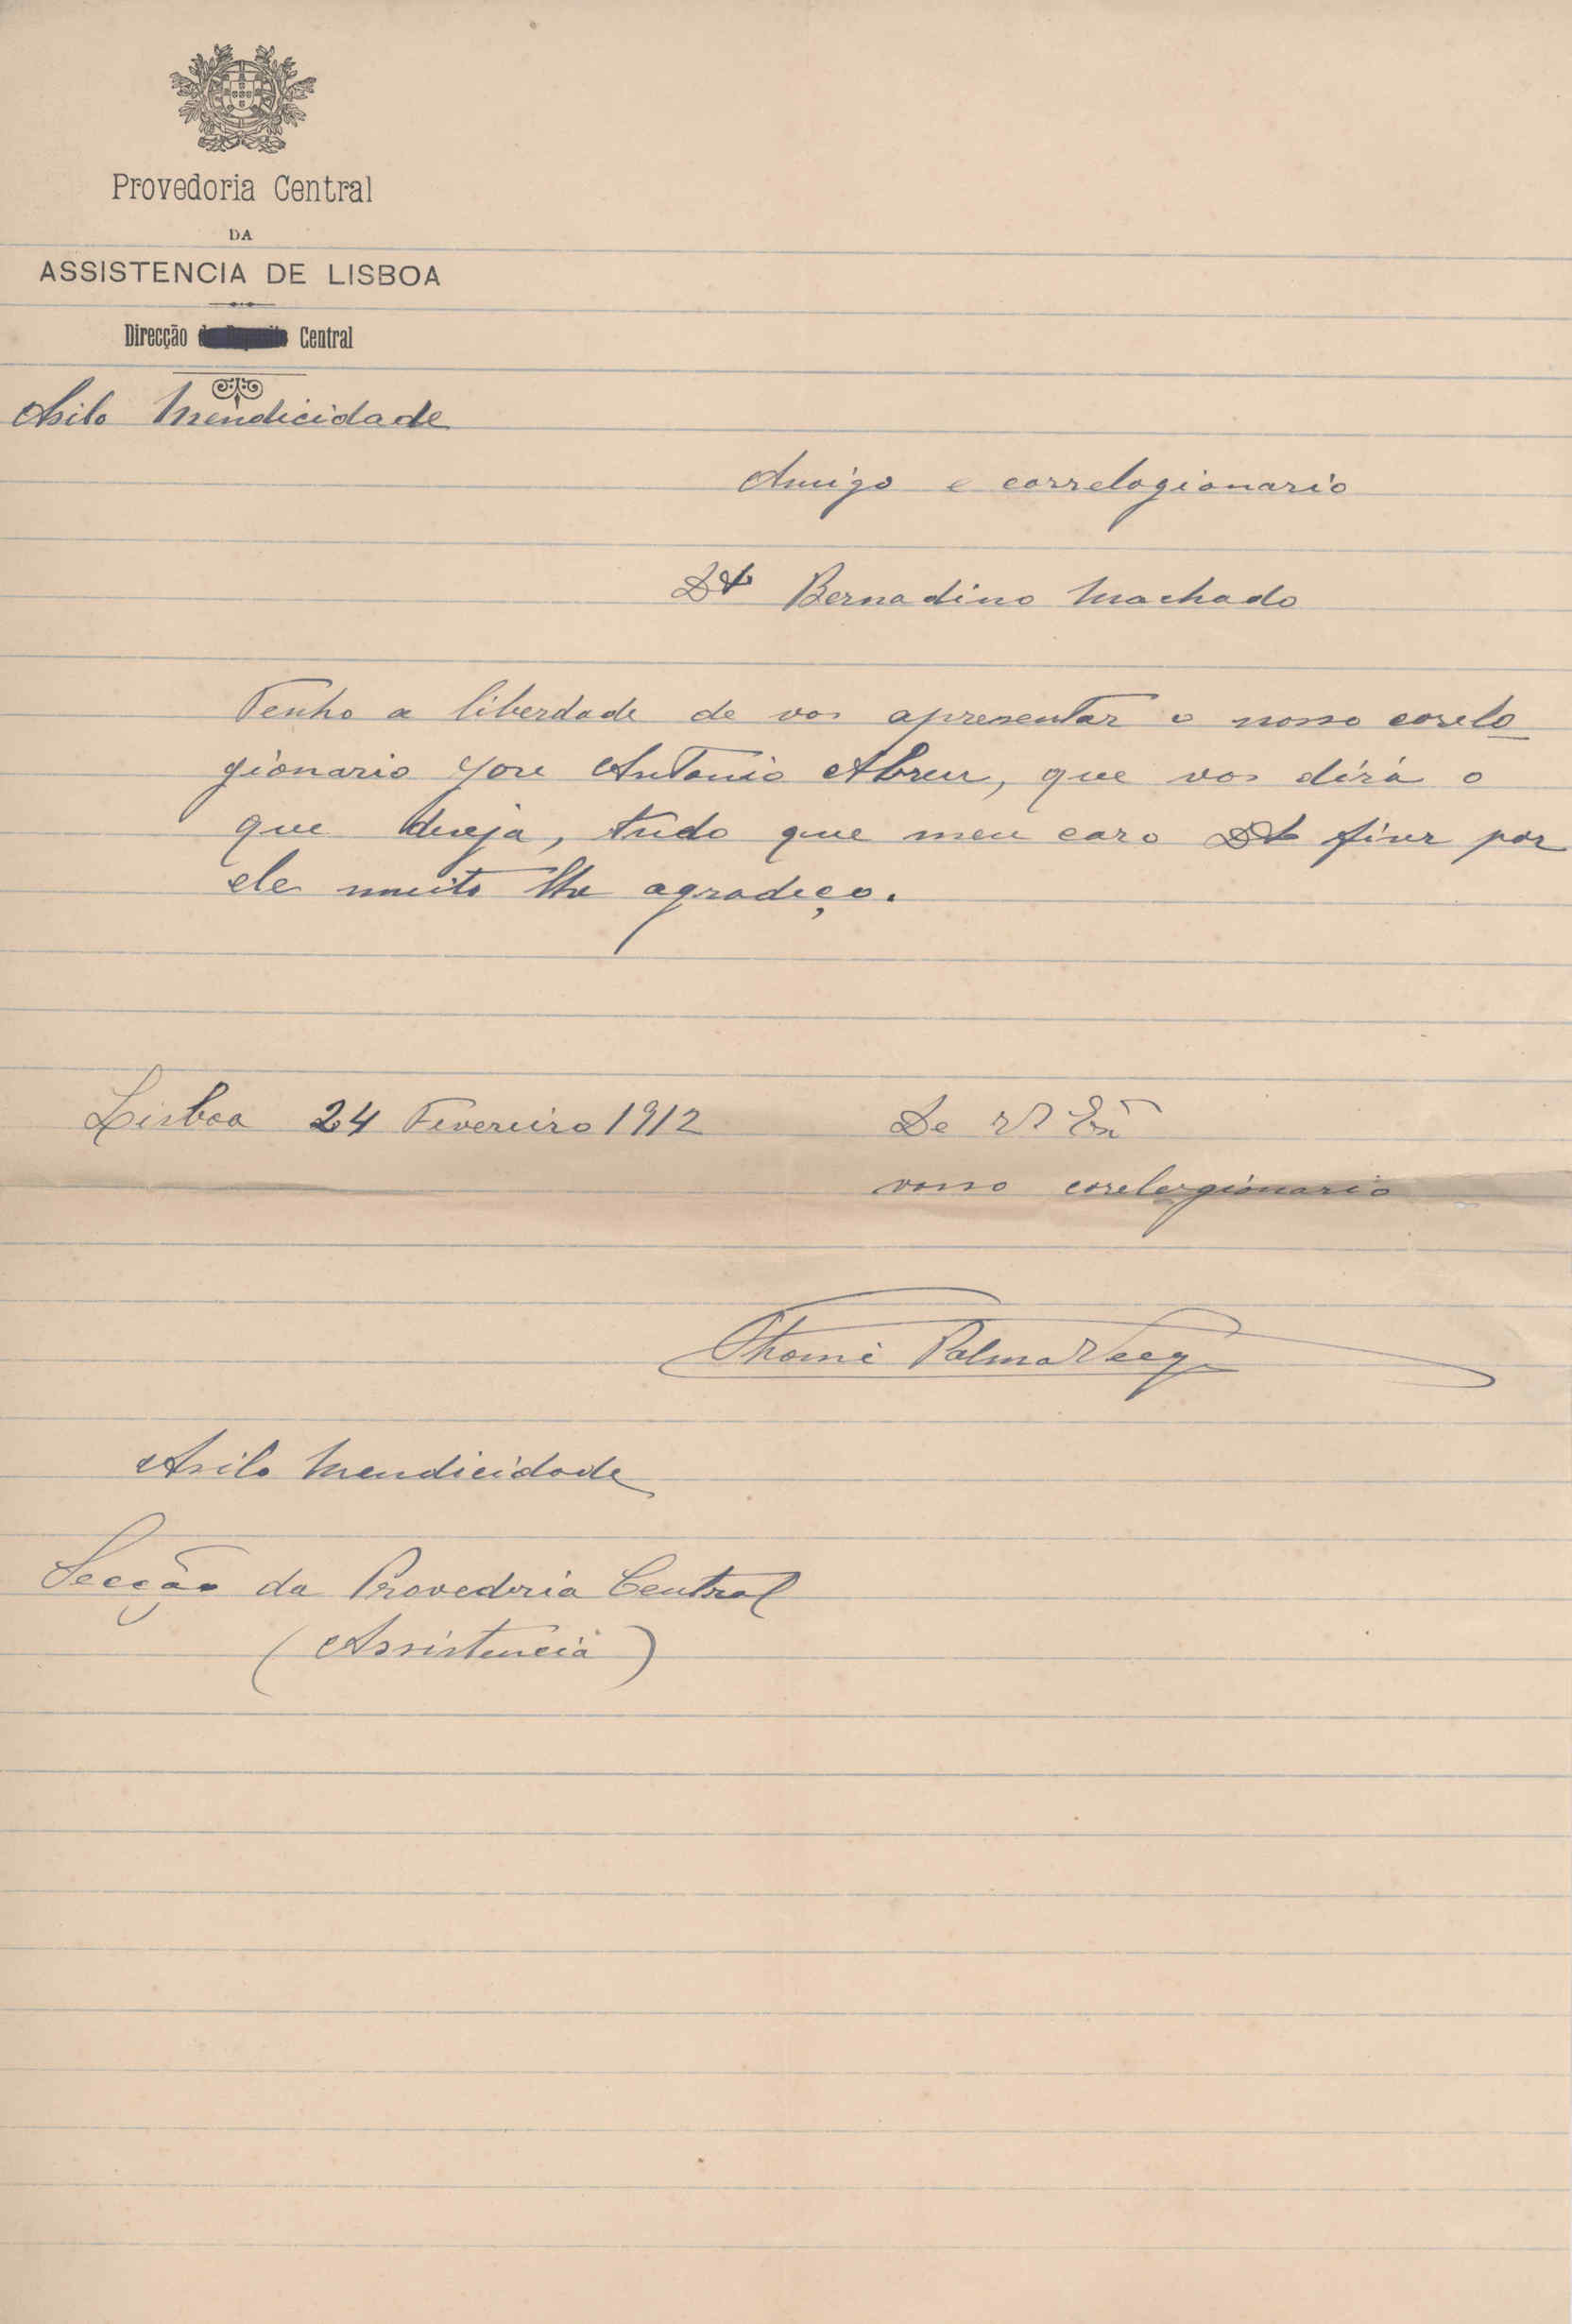 Provedoria Central
DA
ASSISTENCIA DE LISBOA
Direcção Central
Asilo Mendicidade
Amigo e correlogionario
Dr Bernadino Machado
Tenho a liberdade de vos apresentar o nosso corelo
gionario José Antonio Abreu, que vos dirá o
que deseja, tudo que meu caro Dr fizer por
ele muito lhe agradeço.
Lisboa 24 Fevereiro 1912
De V Exª
vosso corelogionario
Thomé Palma Veiga
Asilo Mendicidade
Secção da Provedoria Central
(Assistencia)